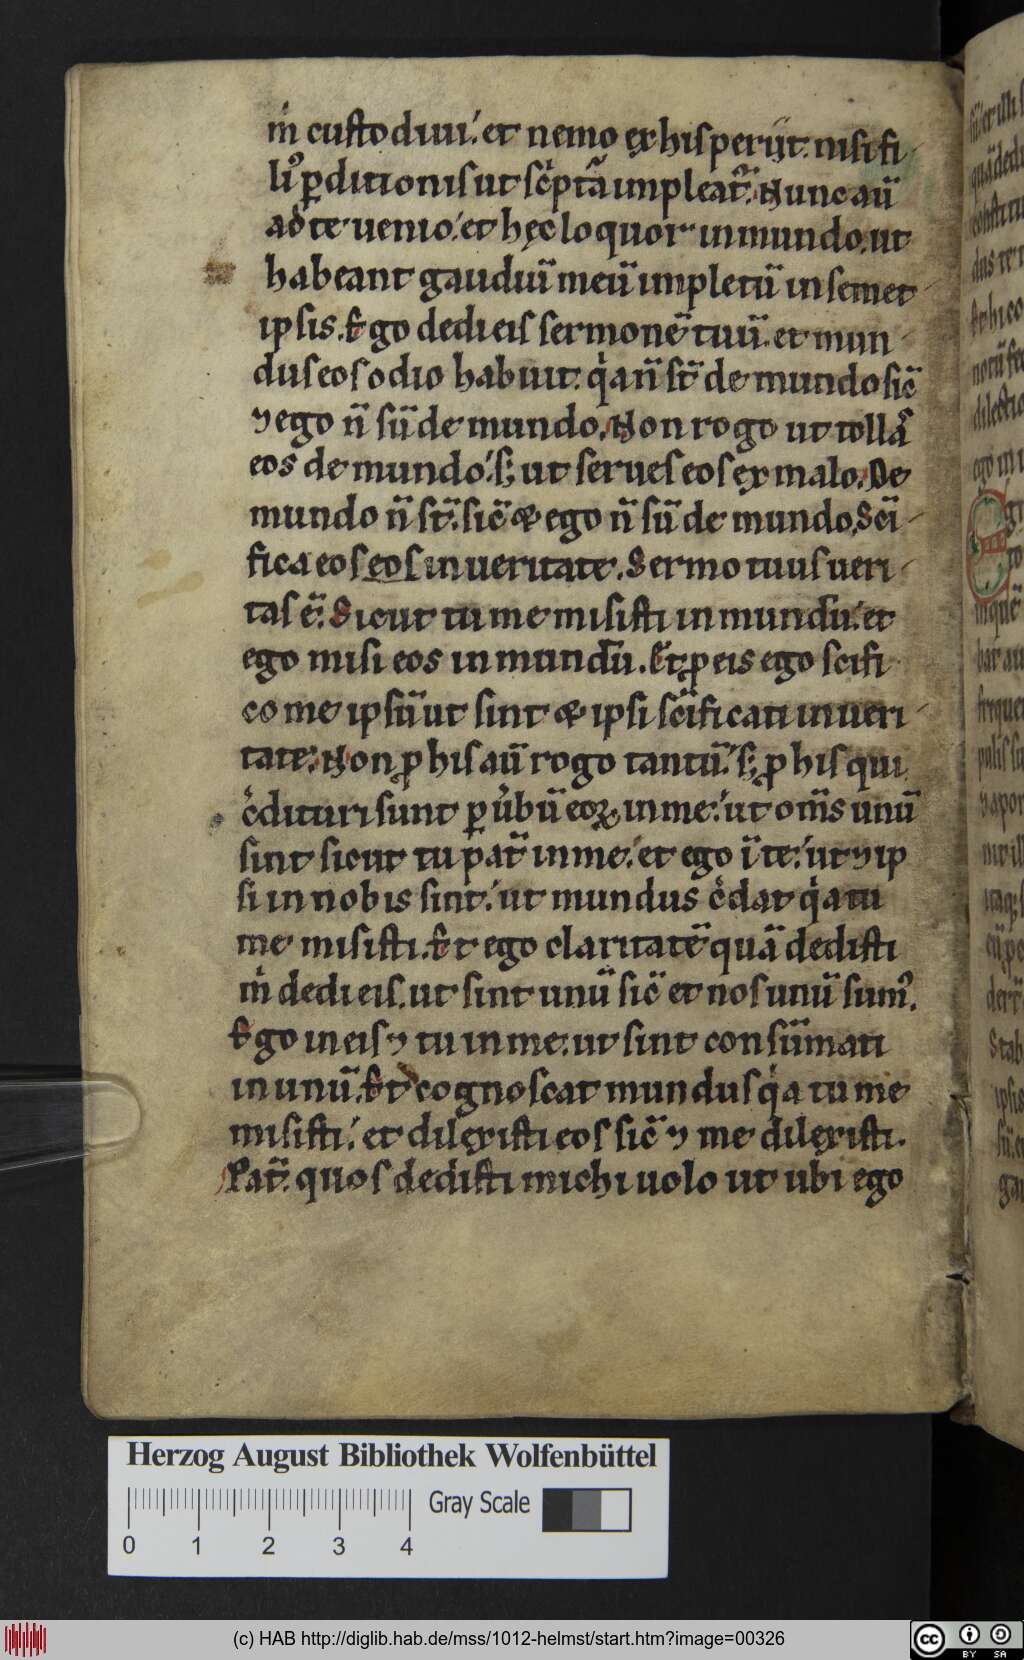 m̍ custodiui. et nemo ex his perijt. nisi fi
liꝰ ꝑditionis ut sc̍ptā impleat᷑. Nunc aū
ad te uenio. et hęc loquor in mundo. ut
habeant gaudiū meū impletū in semet
ipsis. Ego dedi eis sermonē tuū. et mun
dus eos odio habuit. qͥa n̄ st̄ de mundo sic̄
⁊ ego n̄ sū de mundo. Non rogo ut tollaͤs
eos de mundo. s; ut serues eos ex malo. De
mundo n̄ st̄. sic̄ & ego n̄ sū de mundo. Sc̄i
fica eos eos in ueritate. Sermo tuus ueri
tas ē. Sicut tu me misisti in mundū. et
ego misi eos in mundū. Et ꝓ eis ego sc̄ifi
co me ipsū ut sint & ipsi sc̄ificati in ueri
tate. Non ꝓ his aū rogo tantū. s; ꝓ his qui
c̍dituri sunt ꝑ u̍bū eoꝝ in me. ut om̄s unū
sint sicut tu pat̄ in me. et ego ī te. ut ⁊ ip
si in nobis sint. ut mundus c̍dat qͥa tu
me misisti. Et ego claritatē quā dedisti
m̍ dedi eis. ut sint unū sic̄ et nos unū sumꝰ.
Ego in eis ⁊ tu in me. ut sint consūmati
in unū. Et cognoscat mundus qͥa tu me
misisti. et dilexisti eos sic̄ ⁊ me dilexisti.
Pat̄. quos dedisti michi uolo ut ubi ego
Herzog August Bibliothek Wolfenbüttel
Gray Scale
0 1 2 3 4
(c) HAB http://diglib.hab.de/mss/1012-helmst/start.htm?image=00326
cc BY SA